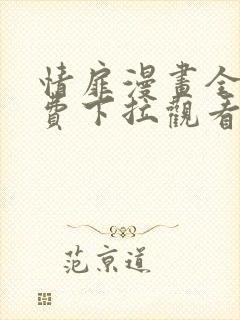 情扉漫畫全
費下拉觀看
范京道